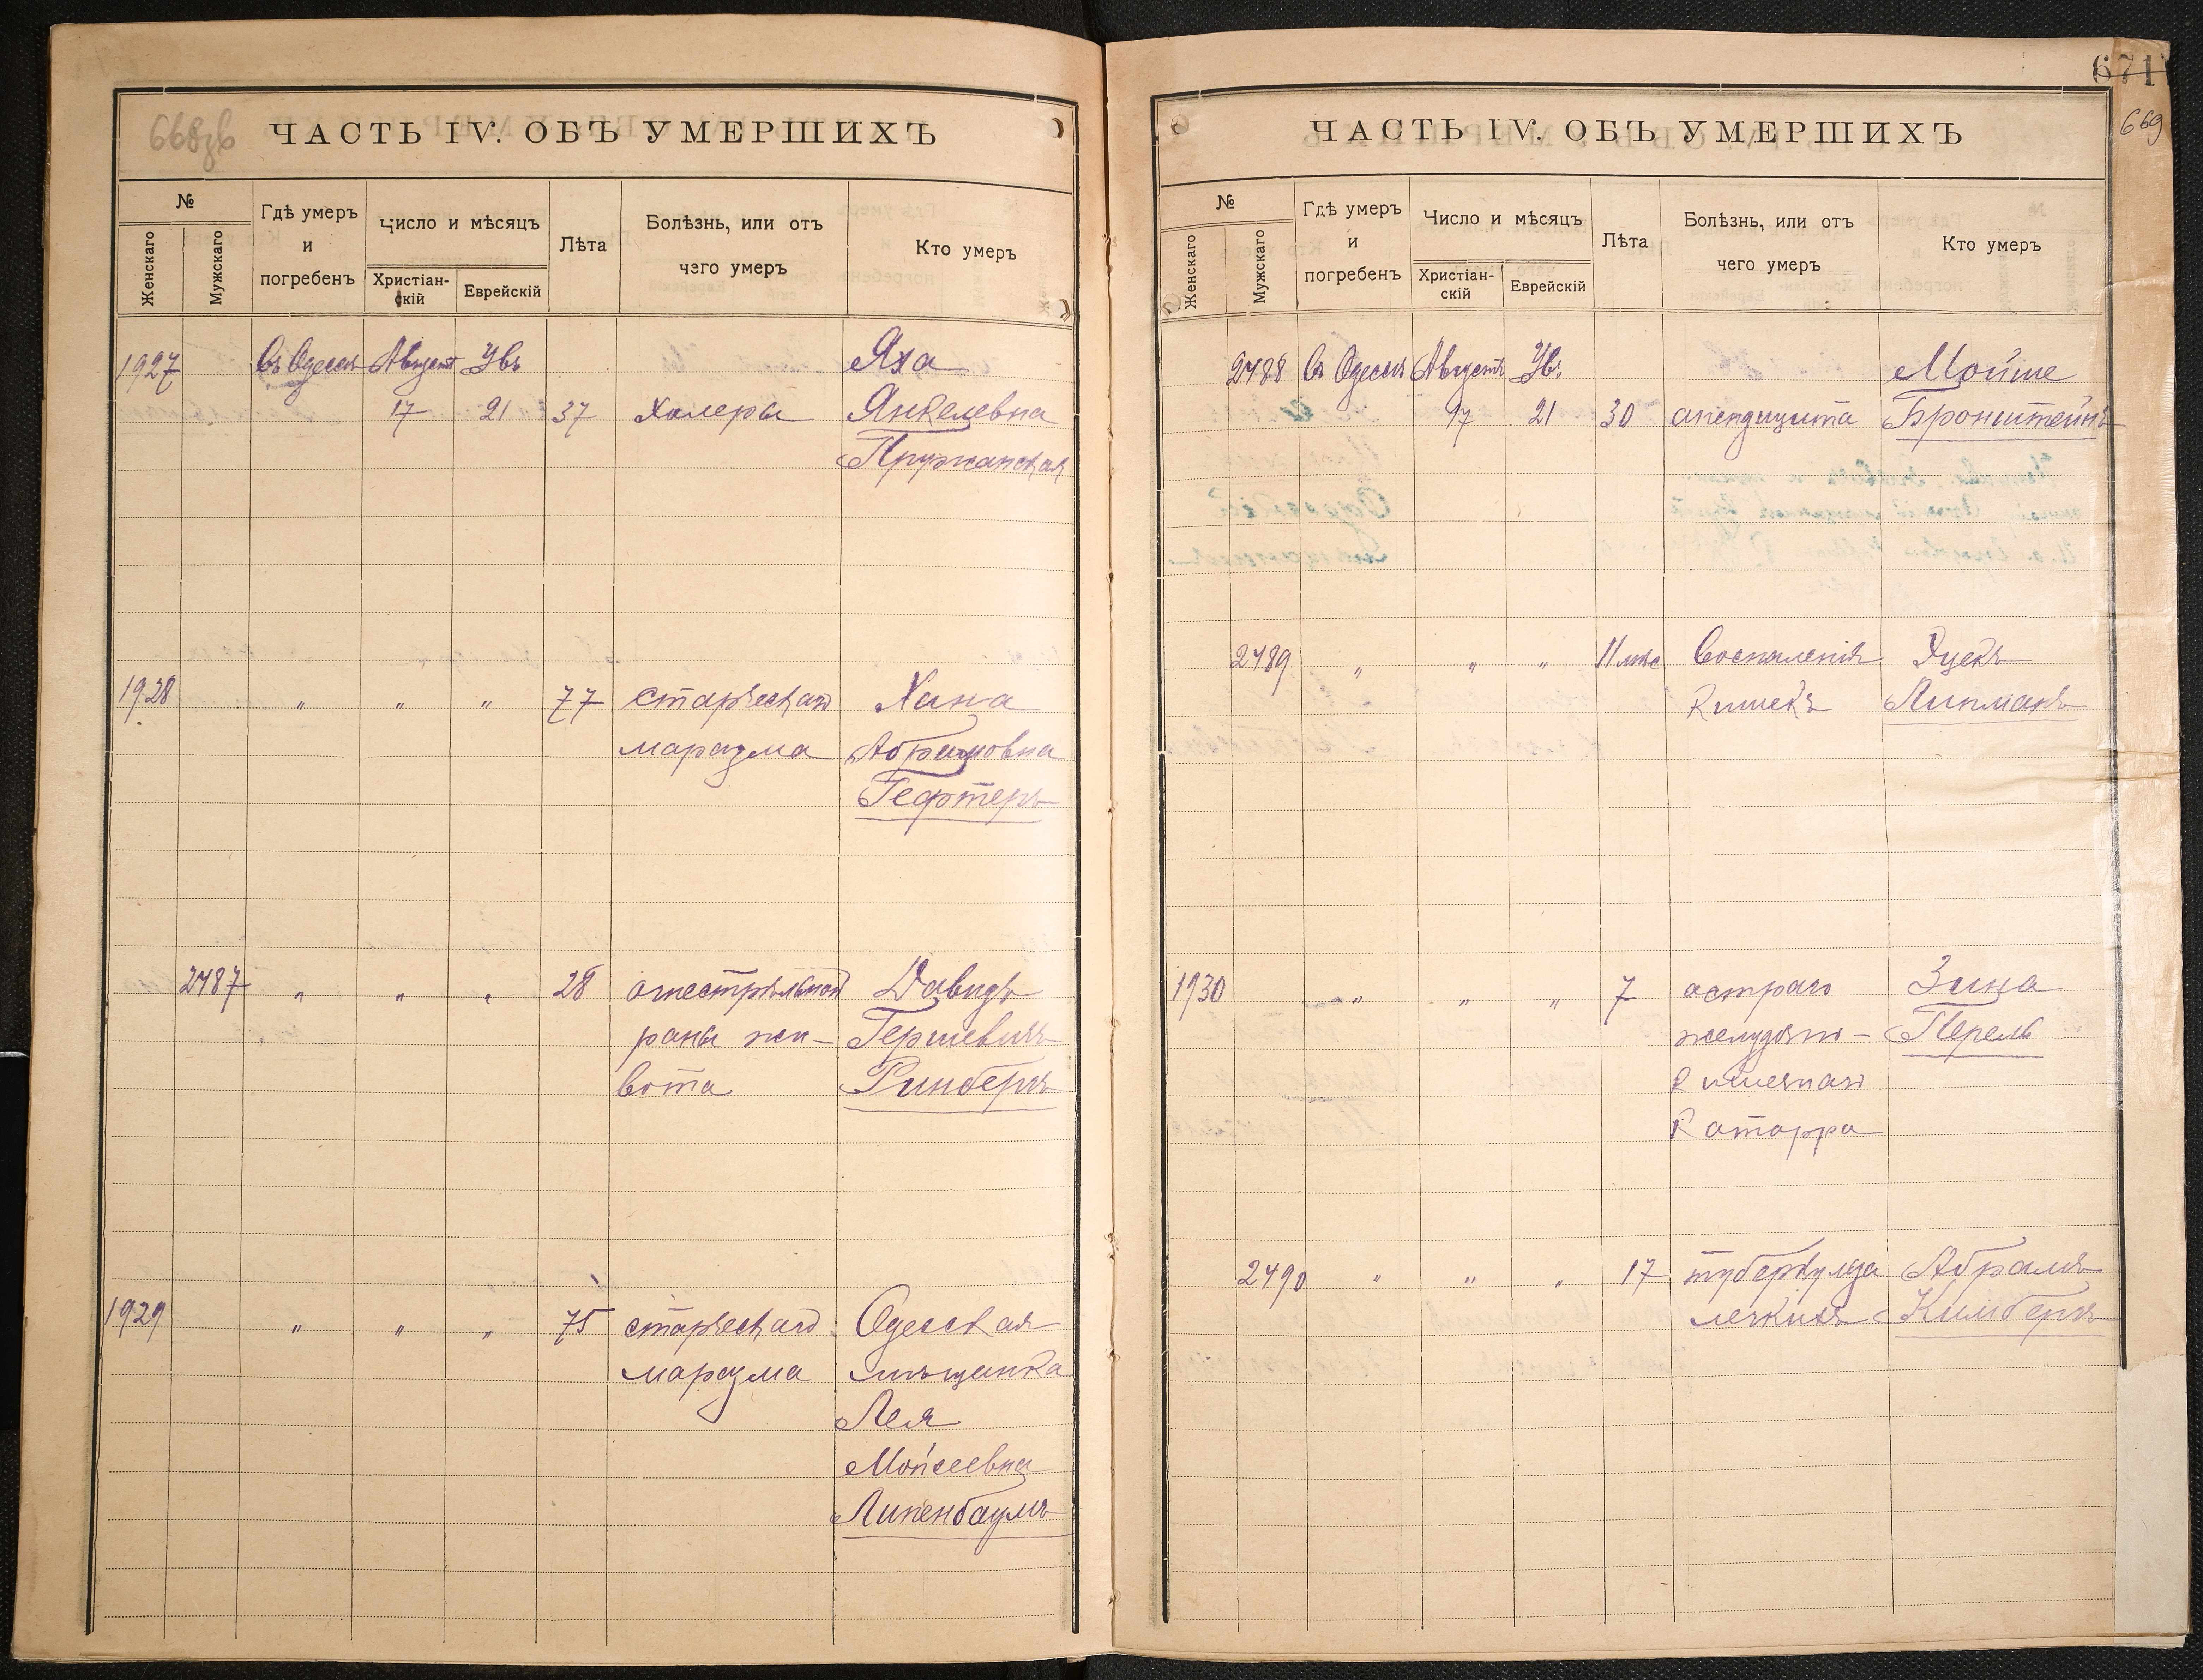 668об
ЧАСТЬ IV. ОБЪ УМЕРШИХЪ
№
Женскаго
Мужскаго
Гдѣ умеръ
и
погребенъ
Число и мѣсяцъ
Христіан-
скій
Еврейскій
Лѣта
Болѣзнь, или отъ
чего умеръ
Кто умеръ
1927 Въ Одессѣ Августъ Увъ Яха
17 21 37 Холеры Янкелевна
Пружанская
1928 " " " 77 старческаго Хана
маразма Абрамовна
Гефтеръ
2487 " " " 28 огнестрѣльной Давидъ
раны жи- Гершевичъ
вота Гинбергъ
1929 " " " 75 старческаго Одесская
маразма мѣщанка
Лея
Мойсеевна
Липенбаумъ
671
669
ЧАСТЬ IV. ОБЪ УМЕРШИХЪ
№
Женскаго
Мужскаго
Гдѣ умеръ
и
погребенъ
Число и мѣсяцъ
Христіан-
скій
Еврейскій
Лѣта
Болѣзнь, или отъ
чего умеръ
Кто умеръ
2488 Въ Одессѣ Августъ Увъ Мойше
17 21 30 апендицита Бронштейнъ
2489 " " " 11 мѣс Воспаленія
кишекъ Липманъ
1930 " " " 7 остраго Зина
желудочно- Перель
кишечнаго
катарра
2490 " " " 17 туберкулеза Абрамъ
легкихъ Кимбергъ